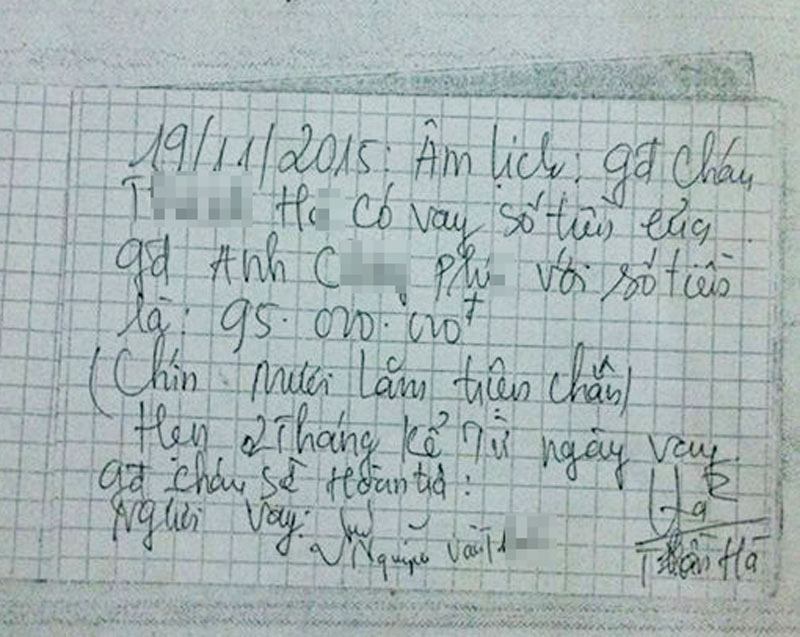 19/11/2015: Âm lịch: gđ cháu
T Hà có vay số tiền của
gđ Anh C Ph với số tiền
là: 95.000.000đ
(Chín mươi lăm triệu chẵn)
Hẹn 2 tháng kể từ ngày vay.
gđ cháu sẽ hoàn trả:
Người vay:
Nguyễn Văn T
Hà
Trần Hà